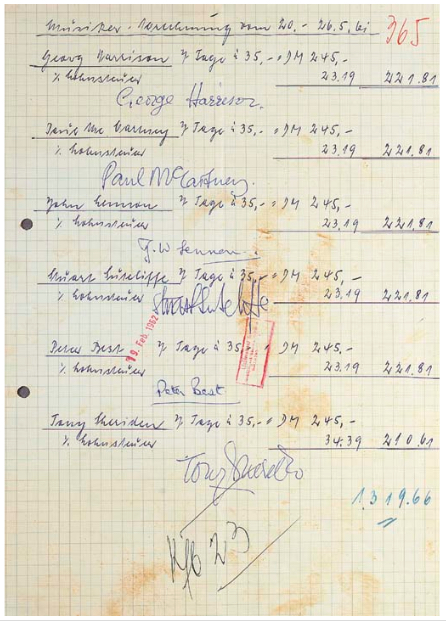 Musiker-Abrechnung vom 20. - 26.5. bei 365
Georg Harrison 7 Tage à 35,- = DM 245,-
% Lohnsteuer 23.19 221.81
George Harrison.
Paul Mc Cartney 7 Tage à 35,- = DM 245,-
% Lohnsteuer 23.19 221.81
Paul McCartney.
John Lennon 7 Tage à 35,- = DM 245,-
% Lohnsteuer 23.19 221.81
J.W Lennon.
Stuart Sutcliffe 7 Tage à 35,- = DM 245,-
% Lohnsteuer 23.19 221.81
Stuart Sutcliffe
19. Feb. 1962
Peter Best 7 Tage à 35,- = DM 245.-
% Lohnsteuer 23.19 221.81
Peter Best
Tony Sheridan 7 Tage à 35,- = DM 245,-
% Lohnsteuer 34.39 210.61
Tony Sheridan
1.319.66
Kfb 23